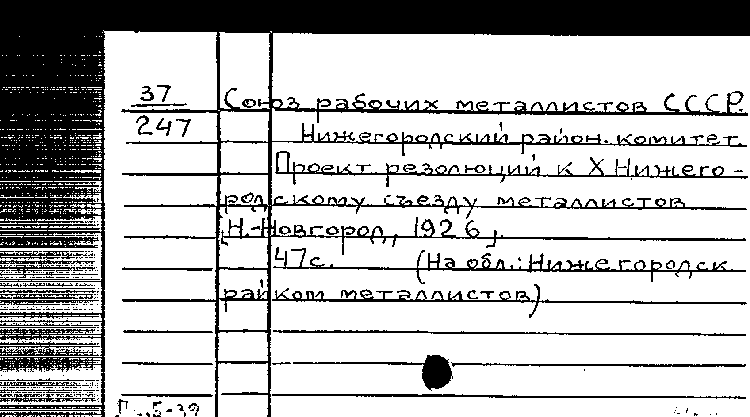 37
247
Союз рабочих металлистов СССР.
Нижегородский район. комитет.
Проект резолюций к X Нижего-
родскому съезду металлистов
[Н.-Новгород, 1926].
47с. (На обл.: Нижегородск.
райком металлистов).